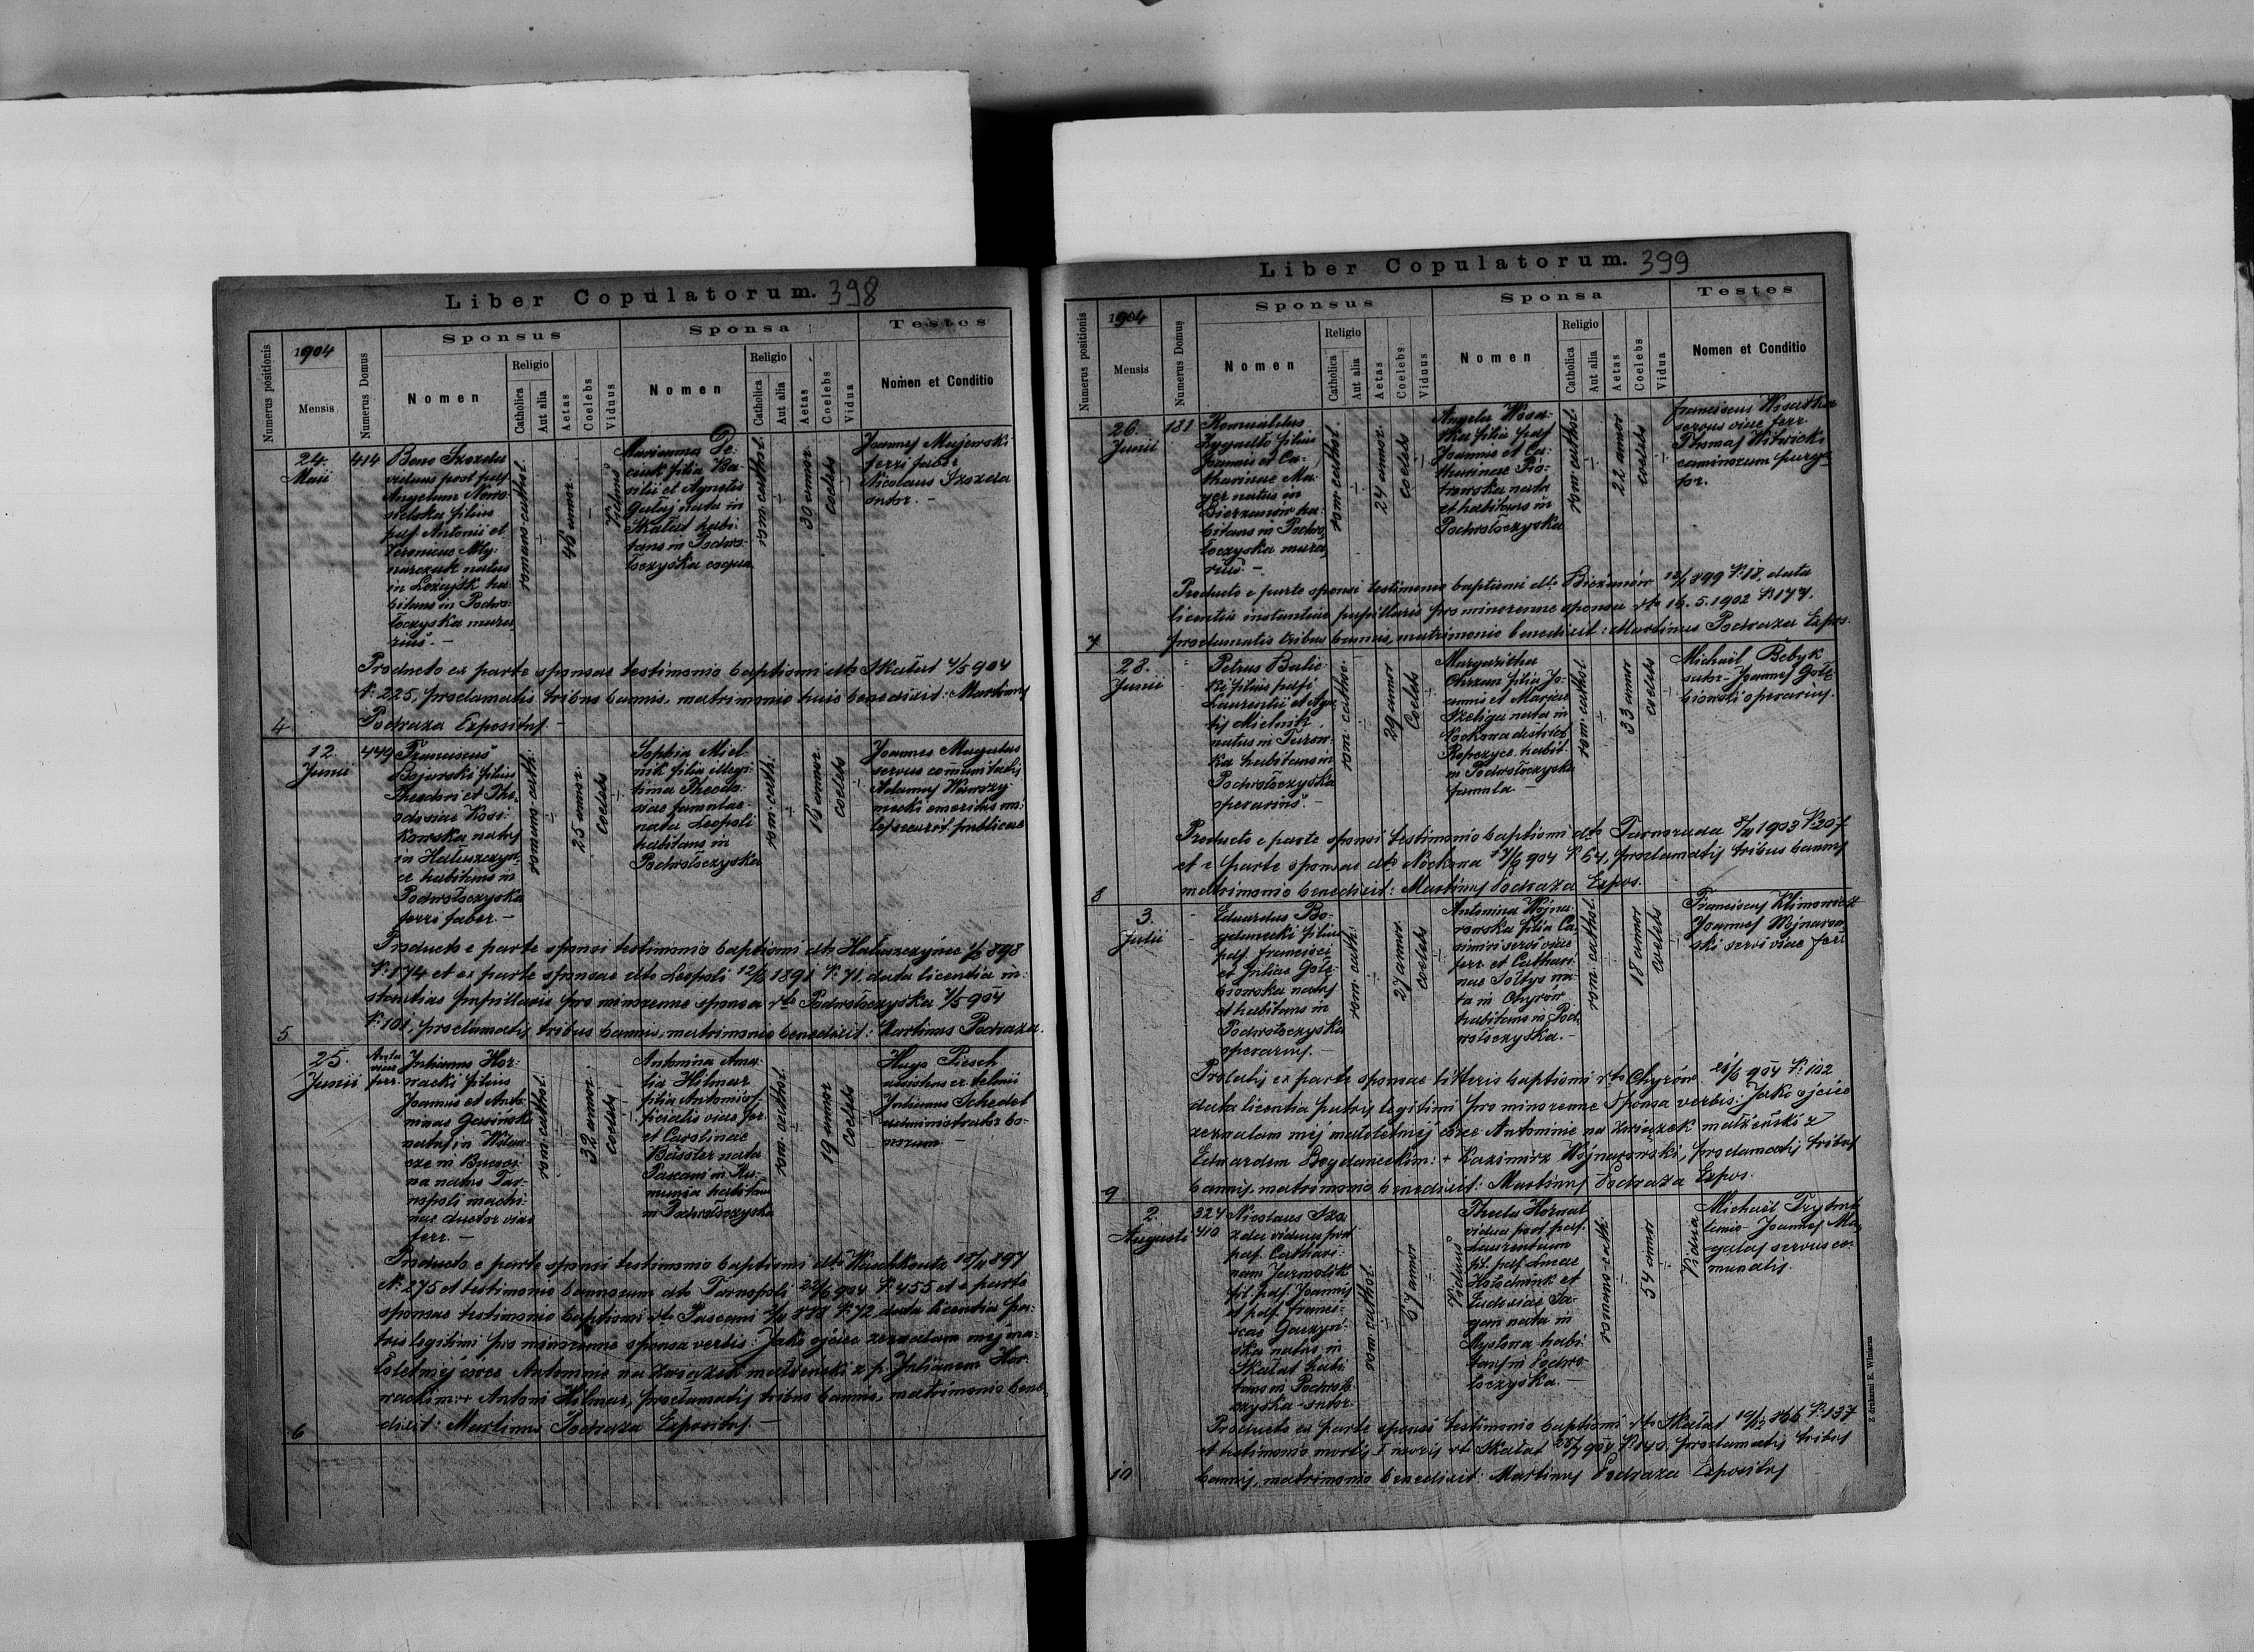 Liber Copulatorum. 398
Numerus positionis
1904
Mensis
Numerus Domus
Sponsus
Nomen
Religio
Catholica
Aut alia
Aetas
Coelebs
Viduus
Sponsa
Nomen
Religio
Catholica
Aut alia
Aetas
Coelebs
Vidua
Testes
Nomen et Conditio
4
24.
Maii
414
Beno Szozda
viduus post pdf
Angelam Nowo
sielska filius
pdf. Antonii et
Veronicae Mły-
narczuk natus
in Leżajsk ha
bitans in Podwo-
łoczyska mura
rius. —
romano-cathol.
46 annor.
Viduus
Marianna
filia Ba-
silii et Agnetis
nata in
Skałat habi-
tans in Podwo-
łoczyska coqua
rom. cathol.
30 annor.
coelebs
Joannes Majewski
ferri faber
Nicolaus Szozda
sutor. —
Producto ex parte sponsae testimonio baptismi dto Skałat 4/5 904
N: 225, proclamatis tribus bannis, matrimonio huic benedixit: Martinus
Podraza Expositus. —
5
12.
Junii
449
Franciscus
Bojarski filius
Theodori et The-
odosiae Kos-
kowska natus
in Hałuszczyn-
ce habitans in
Podwołoczyska
ferri faber. —
romano-cath.
25 annor.
coelebs
Sophia Miel
nik filia illegi-
tima Theodo-
siae famulae
nata Leopoli
habitans in
Podwołoczyska
rom. cath.
16 annor
coelebs
Joannes Magalas
servus comunitatis
Adamus Wawrzy-
necki emeritus mi-
les securit. publicae
Producto e parte sponsi testimonio baptismi dto Hałuszczyńce 898
N: 174 et ex parte sponsae dto Leopoli 12/ 1891 N: 71. data licentia in-
stantiae pupillaris pro minorenne sponsa dto Podwołoczyska 4/5 904
N: 101, proclamatis tribus bannis, matrimonio benedixit: Martinus Podraza.
6
25.
Junii
viae
ferr.
Julianus Hor-
nacki filius
Joannis et Anto-
ninae Gasińska
natus in
in Bucovi-
na natus Tar-
nopoli machi-
nae ductor viae
ferr. —
rom. cathol.
32 annor.
coelebs
Antonina Ama-
lia Hilmar
filia Antonii of-
ficialis viae fer.
et Carolinae
Bässler nata
Pascani in Ru-
munia habitans
in Podwołoczyska
rom. cathol.
19 annor
coelebs
Hugo Piesch
assistens cr. telonii
Julianus Schedel
administrator bo-
norum —
Producto e parte sponsi testimonio baptismi dto Waschkoutz 18/ 897
N: 275 et testimonio bannorum dto Tarnopoli 22/6 904 N: 455 et e parte
sponsae testimonio baptismi dto Pascani N: 72, data licentia pa-
tris legitimi pro minorenne sponsa verbis: Jako ojciec zezwalam mej ma-
łoletniej córce Antoninie na związek małżeński z p. Julianem Hor-
nackim: Antoni Hilmar, proclamatis tribus bannis, matrimonio bene-
dixit: Martinus Podraza Expositus. —
Liber Copulatorum. 399
Numerus positionis
1904
Mensis
Numerus Domus
Sponsus
Nomen
Religio
Catholica
Aut alia
Aetas
Coelebs
Viduus
Sponsa
Nomen
Religio
Catholica
Aut alia
Aetas
Coelebs
Vidua
Testes
Nomen et Conditio
7
26.
Junii
181
Romualdus
filius
Joannis et Ca-
tharinae Ma-
yer natus in
Bieżanów ha-
bitans in Podwo
łoczyska mura
rius. —
rom. cathol.
24 annor.
coelebs
Angela Wosa-
tka filia pdf
Joannis et Ca-
tharinae Pio-
trowska nata
et habitans in
Podwołoczyska
rom. cathol.
22 annor
coelebs
Franciscus Wosatka
servus viae ferr.
Thomas Witwicki
caminorum purga-
tor.
Producto e parte sponsi testimonio baptismi dto Bieżanów 899 N: 18, data
licentia instantiae pupillaris pro minorenne sponsa dto 16. 5. 1902 N: 177.
proclamatis tribus bannis, matrimonio benedixit: Martinus Podraza Expos.
8
28.
Junii
Petrus Balic-
ki filius pdf
Laurentii et Agne-
tis Mielnik
natus in Turów-
ka habitans in
Podwołoczyska
operarius. —
rom. cathol.
29 annor
Coelebs
Margaritha
Chrzan filia Jo-
annis et Mariae
Szeliga nata in
Nockowa district
Ropczyce habit.
in Podwołoczyska
famula. —
rom. cathol.
33 annor
coelebs
Michaël Bebyk
sutor - Joannes Gołę-
biowski operarius.
Producto e parte sponsi testimonio baptismi dto Tarnoruda 1903 N: 207
et e parte sponsae dto Nockowa 17/6 904 N: 64, proclamatis tribus bannis
matrimonio benedixit: Martinus Podraza Expos.
9
3.
Julii
Eduardus Bo-
gdanecki filius
pdf. Francisci
et Juliae Gołę-
biowska natus
et habitans in
Podwołoczyska
operarius. —
rom. cath.
27 annor
coelebs
Antonina Wójna-
rowska filia Ca-
simiri servi viae
ferr. et Cathari-
nae Sołtys na-
ta in Chyrów
habitans in Pod-
wołoczyska. —
rom. cathol.
18 annor
coelebs
Franciscus Klimowicz
Joannes Wojnarow
ski servi viae ferr
Prolatis ex parte sponsae litteris baptismi dto Chyrów 21/6 904 N: 102
data licentia patris legitimi pro minorenne sponsa verbis: Jako ojciec
zezwalam mej małoletniej córce Antoninie na związek małżeński z
Edwardem Bogdaneckim: + Kazimirz Wójnarowski, proclamatis tribus
bannis, matrimonio benedixit: Martinus Podraza Expos.
10
2.
Augusti
324
410
Nicolaus Szo
zda viduus post
pdf. Cathari-
nam Jarmolik
fil. pdf. Joannis
et pdf. Francis-
cae Gaczyń-
ska natus in
Skałat habi
tans in Podwoło-
czyska sutor.
rom. cathol.
67 annor
Viduus
Thecla Horwat
vidua post pdf.
Laurentium
fil. pdf. Lucae
Hołodniuk et
Eudosiae Sa-
gan nata in
Mysłowa habi
tans in Podwo
łoczyska. —
romano-cath.
54 annor
Vidua
Michaël
Joannes Ma-
galas servus co-
munalis.
Producto ex parte sponsi testimonio baptismi dto Skałat 19/2 866 N: 137
et testimonio mortis I uxoris dto Skałat 28/7 904 N: 140, proclamatis tribus
bannis, matrimonio benedixit: Martinus Podraza Expositus
Z drukarni E. Winiarza